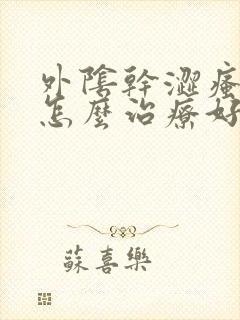 外陰幹澀瘙
怎麼治療好
蘇喜樂